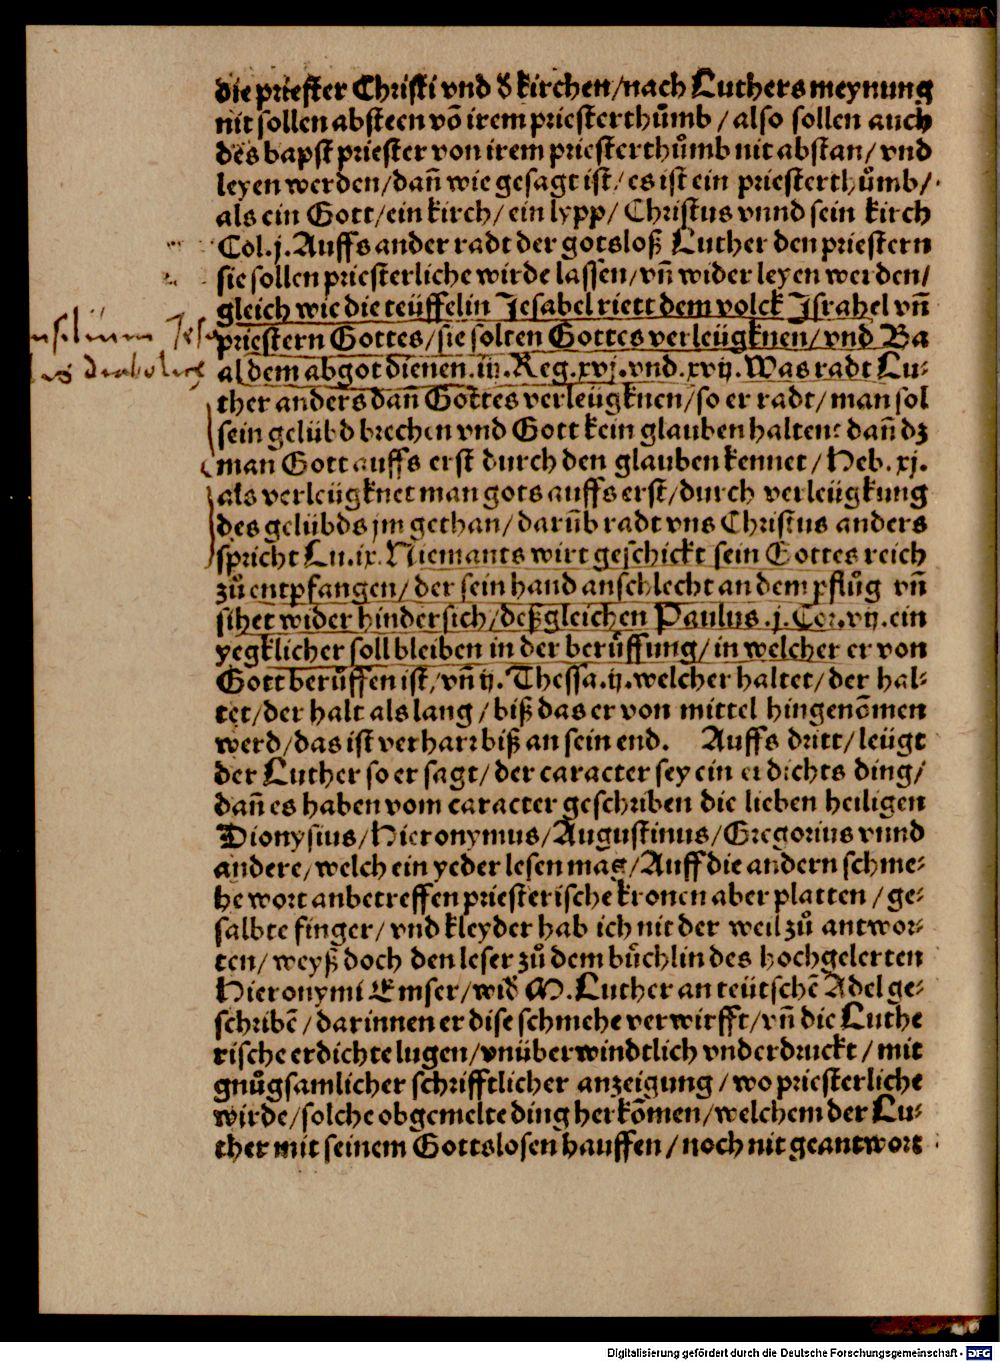 die priester Christi vnd d̕ kirchen/nach Luthers meynung
nit sollen absteen võ irem priesterthůmb / also sollen auch
des bapst priester von irem priesterthůmb nit abstan/ vnd
leyen werden/dañ wie gesagt ist/ es ist ein priesterthůmb/
als ein Gott/ein kirch/ ein lypp/ Christus vnnd sein kirch
Col.j. Auffs ander radt der gotsloß Luther den priestern
sie sollen priesterliche wirde lassen/vñ wider leyen werden/
gleich wie die teüffelin Jesabel riett dem volck Israhel vñ
priestern Gottes/sie solten Gottes verleügknen/vnd Ba
al dem abgot dienen.iij.Reg.xvj.vnd.xvij.Was radt Lu⸗
ther anders dañ Gottes verleügknen/so er radt/man sol
sein gelübd brechen vnd Gott kein glauben halten: dañ dz
man Gott auffs erst durch den glauben kennet/Heb.xj.
als verleügknet man gots auffs erst/durch verleügkung
des gelübds jm gethan/darüb radt vns Christus anders
spricht Lu.ix. Niemants wirt geschickt sein Gottes reich
zů entpfangen/der sein hand anschlecht an dem pflůg vñ
sihet wider hindersich/deßgleichen Paulus.j.Cor.vij.ein
yegklicher soll bleiben in der berůffung/in welcher er von
Gott berůffen ist/vñ ij. Thessa.ij.welcher haltet/der hal⸗
tet/der halt als lang /biß das er von mittel hingenõmen
werd/das ist verharr biß an sein end. Auffs dritt/leügt
der Luther so er sagt/der caracter sey ein erdichts ding/
dañ es haben vom caracter geschriben die lieben heiligen
Dionysius/Hieronymus/Augustinus/Gregorius vnnd
andere/welch ein yeder lesen mag/Auff die andern schme⸗
he wort anbetreffen priesterische kronen aber platten /ge⸗
salbte finger/ vnd kleyder hab ich nit der weil zů antwor⸗
ten/ weyß doch den leser zů dem büchlin des hochgelerten
Hieronymi Emser/wid̕ M.Luther an teütschẽ Adel ge⸗
schribẽ /darinnen er dise schmehe verwirfft/vñ die Luthe
rische erdichte lugen/vnüberwindtlich vnderdruckt / mit
gnůgsamlicher schrifftlicher anzeigung /wo priesterliche
wirde/solche obgemelte ding herkõmen/welchem der Lu⸗
ther mit seinem Gottslosen hauffen/noch nit geantwort
diabolus
Digitalisierung gefördert durch die Deutsche Forschungsgemeinschaft - DFG